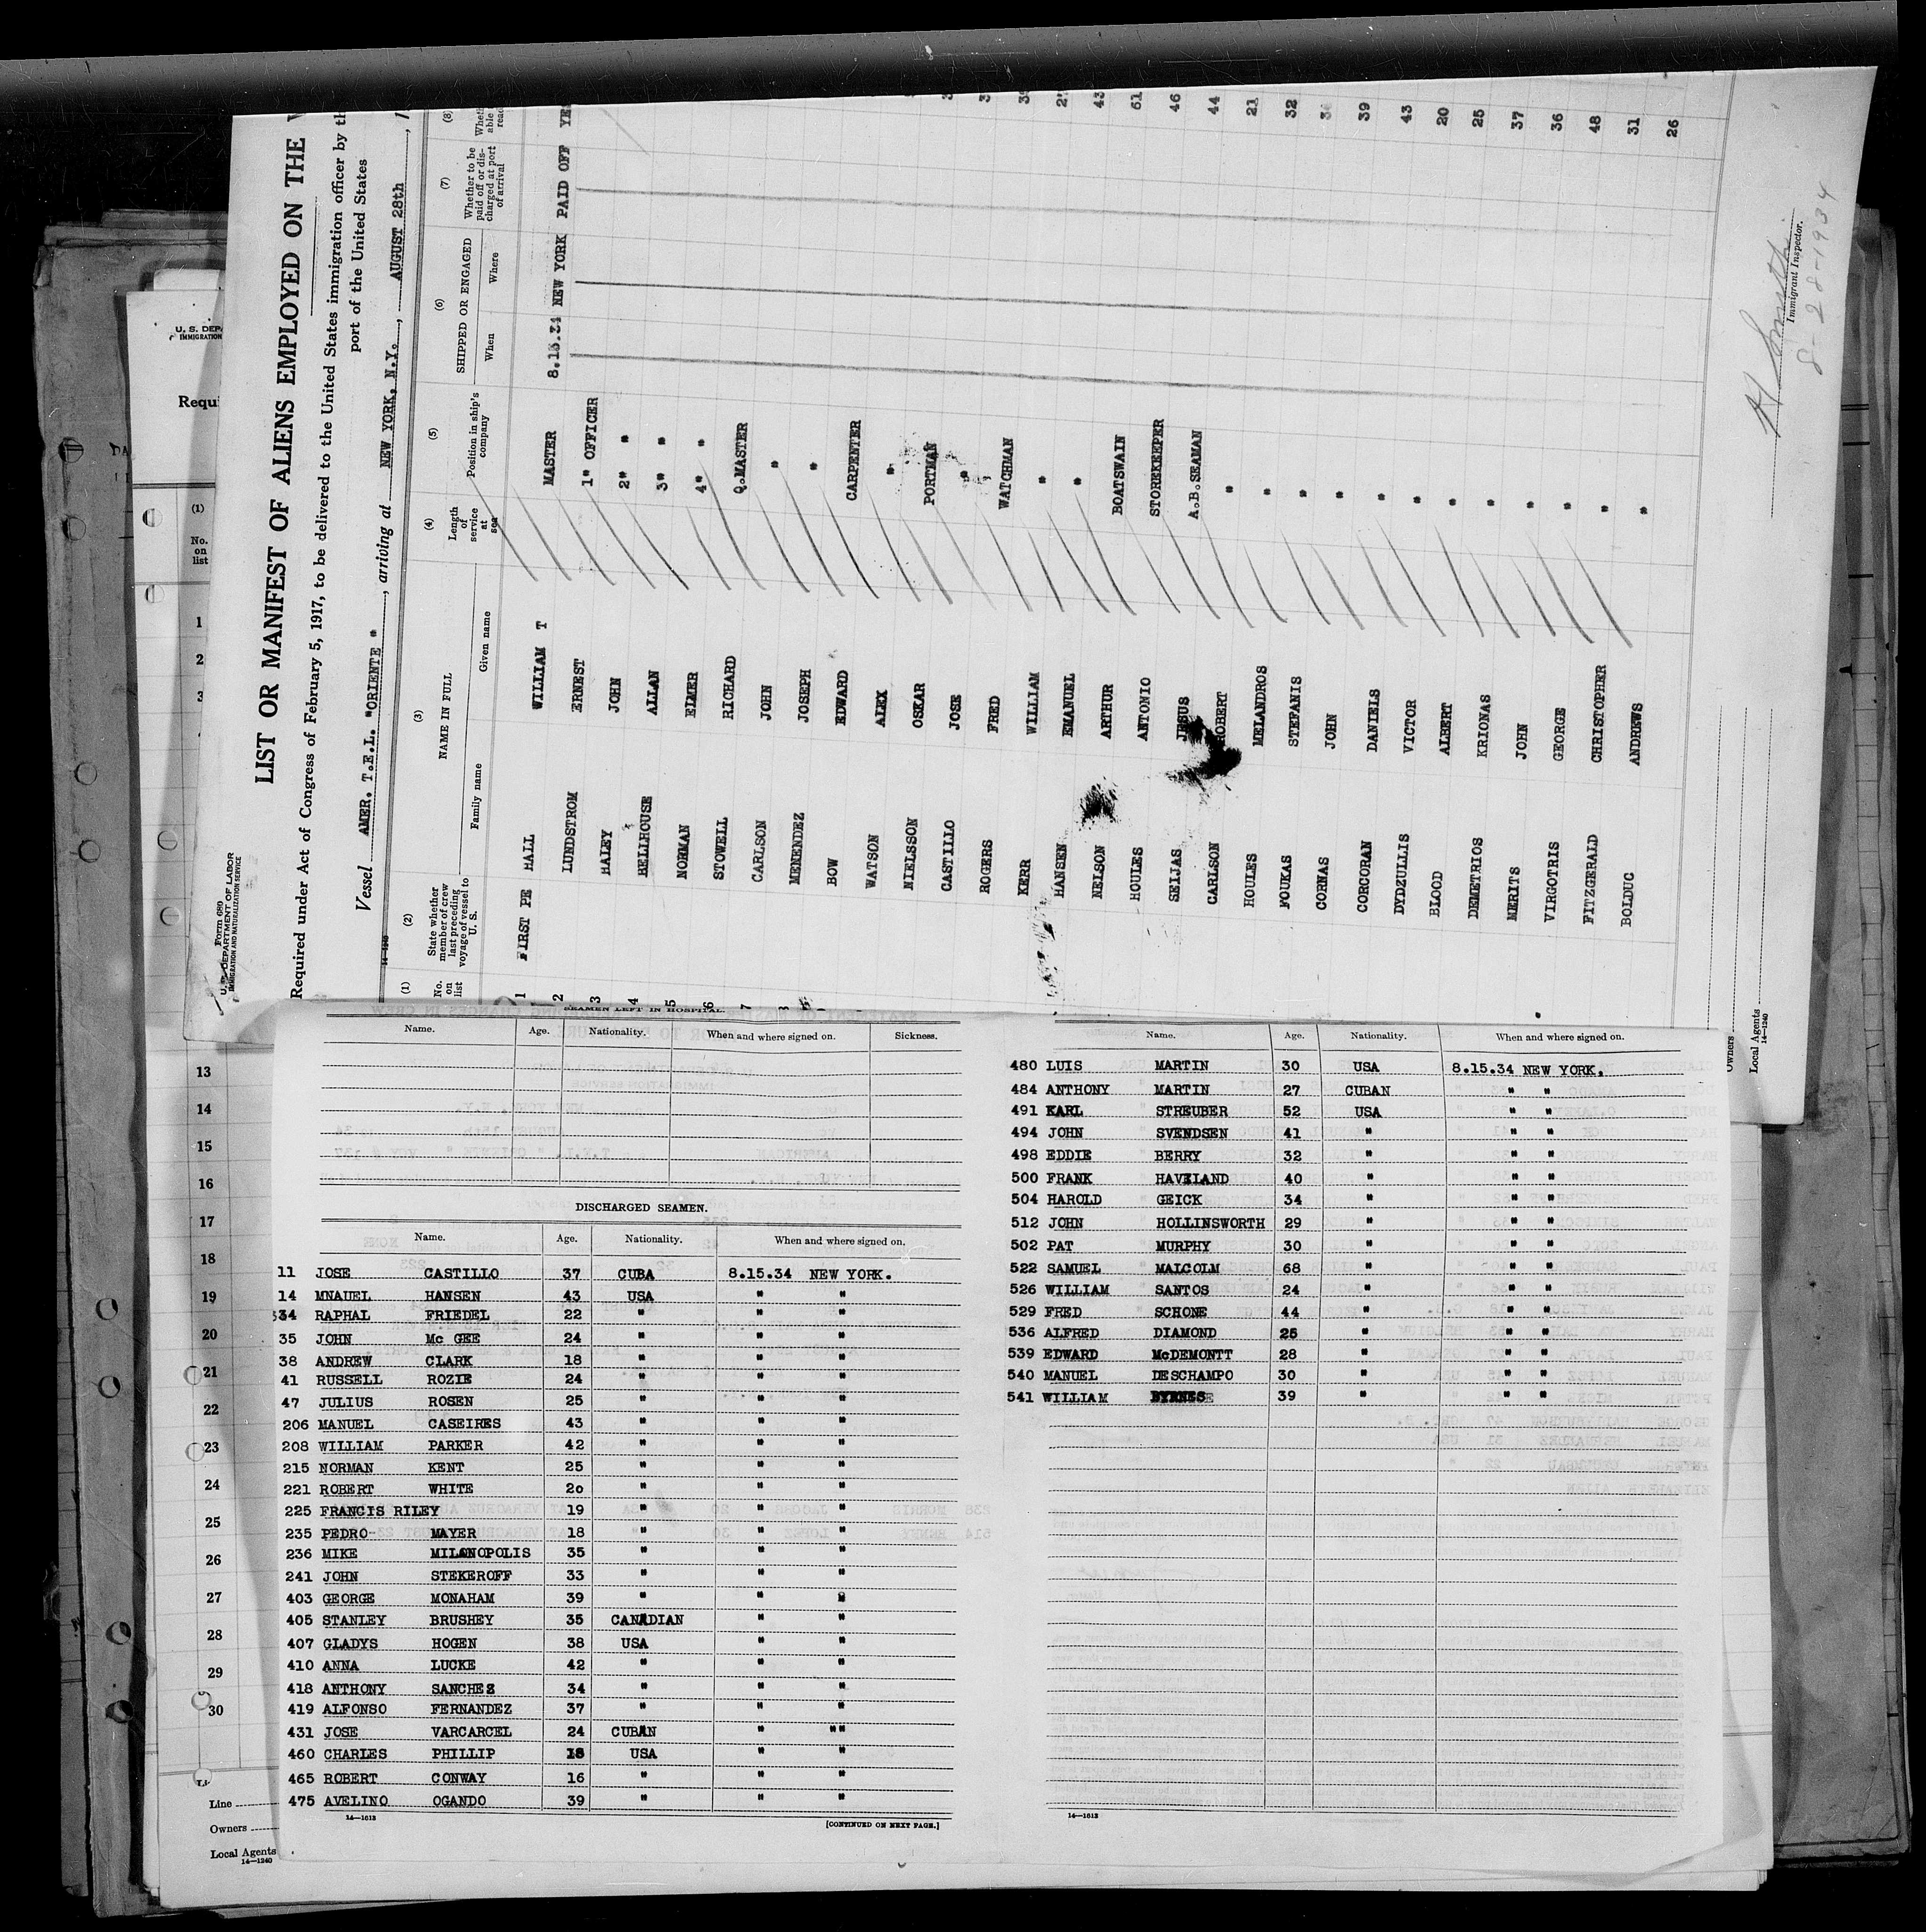 Form 689
U. S. DEPARTMENT OF LABOR
IMMIGRATION AND NATURALIZATION SERVICE
LIST OR MANIFEST OF ALIENS EMPLOYED ON THE
Required under Act of Congress of February 5, 1917, to be delivered to the United States immigration officer by th
port of the United States
Vessel AMER. T.E.L. "ORIENTE" , arriving at NEW YORK, N.Y. , AUGUST 28th
(1) (2) (3) (4) (5) (6) (7) (8)
No. on list
State whether member of crew last preceding voyage of vessel to U. S.
NAME IN FULL
Family name Given name
Length of service at sea
Position in ship's company
SHIPPED OR ENGAGED
When Where
Whether to be paid off or discharged at port of arrival
1 FIRST PE HALL WILLIAM T MASTER 8.13.34 NEW YORK PAID OFF YE
2 LUNDSTROM ERNEST 1" OFFICER
3 HALEY JOHN 2" "
4 BELLHOUSE ALLAN 3" "
5 NORMAN ELMER 4" "
6 STOWELL RICHARD Q.MASTER
7 CARLSON JOHN "
8 MENENDEZ JOSEPH "
BOW EDWARD CARPENTER
WATSON ALEX "
NIELSSON OSKAR PORTMAN
CASTILLO JOSE "
ROGERS FRED WATCHMAN
KERR WILLIAM "
HANSEN EMANUEL "
NELSON ARTHUR BOATSWAIN
HOULES ANTONIO STOREKEEPER
SEIJAS JESUS A.B.SEAMAN
CARLSON ROBERT "
HOULES MELANDROS "
FOUKAS STEFANIS "
CORNAS JOHN "
CORCORAN DANIELS "
DYDZULLIS VICTOR "
BLOOD ALBERT "
DEMETRIOS KRIONAS "
MERITS JOHN "
VIRGOTRIS GEORGE "
FITZGERALD CHRISTOPHER "
BOLDUC ANDREWS "
43
51
46
44
21
32
39
43
20
25
37
36
48
31
26
Smith
Immigrant Inspector.
8-28-1934
Owners
Local Agents
14—1240
U. S. DEPA
IMMIGRATION
Requi
(1)
No. on list
1
2
3
13
14
15
16
17
18
19
20
21
22
23
24
25
26
27
28
29
30
Line
Owners
Local Agents
14—1240
SEAMEN LEFT IN HOSPITAL.
Name. Age. Nationality. When and where signed on. Sickness.
DISCHARGED SEAMEN.
Name. Age. Nationality. When and where signed on.
11 JOSE CASTILLO 37 CUBA 8.15.34 NEW YORK.
14 MNAUEL HANSEN 43 USA " "
34 RAPHAL FRIEDEL 22 " " "
35 JOHN Mc GEE 24 " " "
38 ANDREW CLARK 18 " " "
41 RUSSELL ROZIE 24 " " "
47 JULIUS ROSEN 25 " " "
206 MANUEL CASEIRES 43 " " "
208 WILLIAM PARKER 42 " " "
215 NORMAN KENT 25 " " "
221 ROBERT WHITE 2o " " "
225 FRANCIS RILEY 19 " " "
235 PEDRO MAYER 18 " " "
236 MIKE MILANOPOLIS 35 " " "
241 JOHN STEKEROFF 33 " " "
403 GEORGE MONAHAM 39 " " "
405 STANLEY BRUSHEY 35 CANADIAN " "
407 GLADYS HOGEN 38 USA " "
410 ANNA LUCKE 42 " " "
418 ANTHONY SANCHEZ 34 " " "
419 ALFONSO FERNANDEZ 37 " " "
431 JOSE VARCARCEL 24 CUBAN " ""
460 CHARLES PHILLIP 18 USA " "
465 ROBERT CONWAY 16 " " "
475 AVELINO OGANDO 39 " " "
14—1613
[CONTINUED ON NEXT PAGE.]
Name. Age. Nationality. When and where signed on.
480 LUIS MARTIN 30 USA 8.15.34 NEW YORK.
484 ANTHONY MARTIN 27 CUBAN " "
491 KARL STREUBER 52 USA " "
494 JOHN SVENDSEN 41 " " "
498 EDDIE BERRY 32 " " "
500 FRANK HAVEIAND 40 " " "
504 HAROLD GEICK 34 " " "
512 JOHN HOLLINSWORTH 29 " " "
502 PAT MURPHY 30 " " "
522 SAMUEL MALCOLM 68 " " "
526 WILLIAM SANTOS 24 " " "
529 FRED SCHONE 44 " " "
536 ALFRED DIAMOND 25 " " "
539 EDWARD McDEMONTT 28 " " "
540 MANUEL DESCHAMPO 30 " " "
541 WILLIAM BYRNES 39 " " "
14—1613